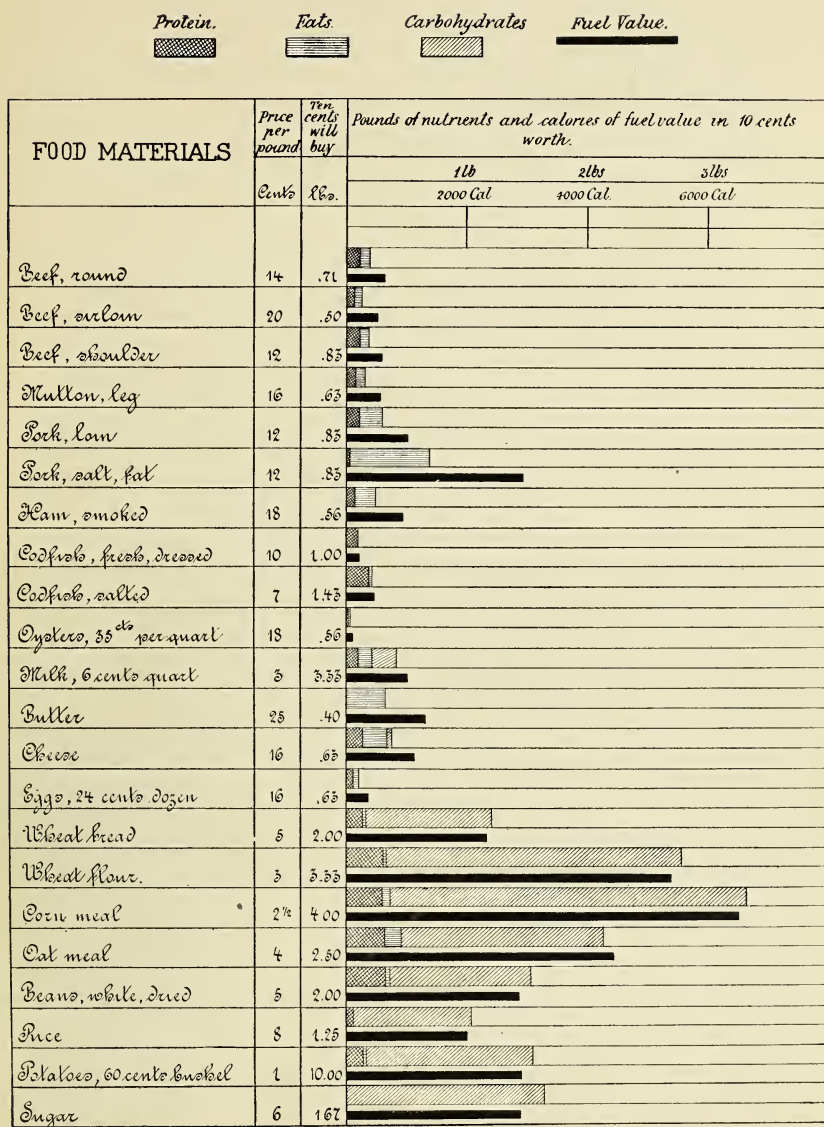 Protein. Fats. Carbohydrates Fuel Value.
FOOD MATERIALS
Price per pound
Ten cents will buy
Pounds of nutrients and calories of fuel value in 10 cents
worth.
Cents lbs.
1 lb 2 lbs 3 lbs
2000 Cal 4000 Cal. 6000 Cal
Beef, round 14 .71
Beef, sirloin 20 .50
Beef, shoulder 12 .83
Mutton, leg 16 .63
Pork, loin 12 .83
Pork, salt, fat 12 .83
Ham, smoked 18 .56
Codfish, fresh, dressed 10 1.00
Codfish, salted 7 1.43
Oysters, 35 cts per quart 18 .56
Milk, 6 cents quart 3 3.33
Butter 25 .40
Cheese 16 .63
Eggs, 24 cents dozen 16 .63
Wheat bread 5 2.00
Wheat flour. 3 3.33
Corn meal 2 1/2 4 00
Oat meal 4 2.50
Beans, white, dried 5 2.00
Rice 8 1.25
Potatoes, 60 cents bushel 1 10.00
Sugar 6 1 67